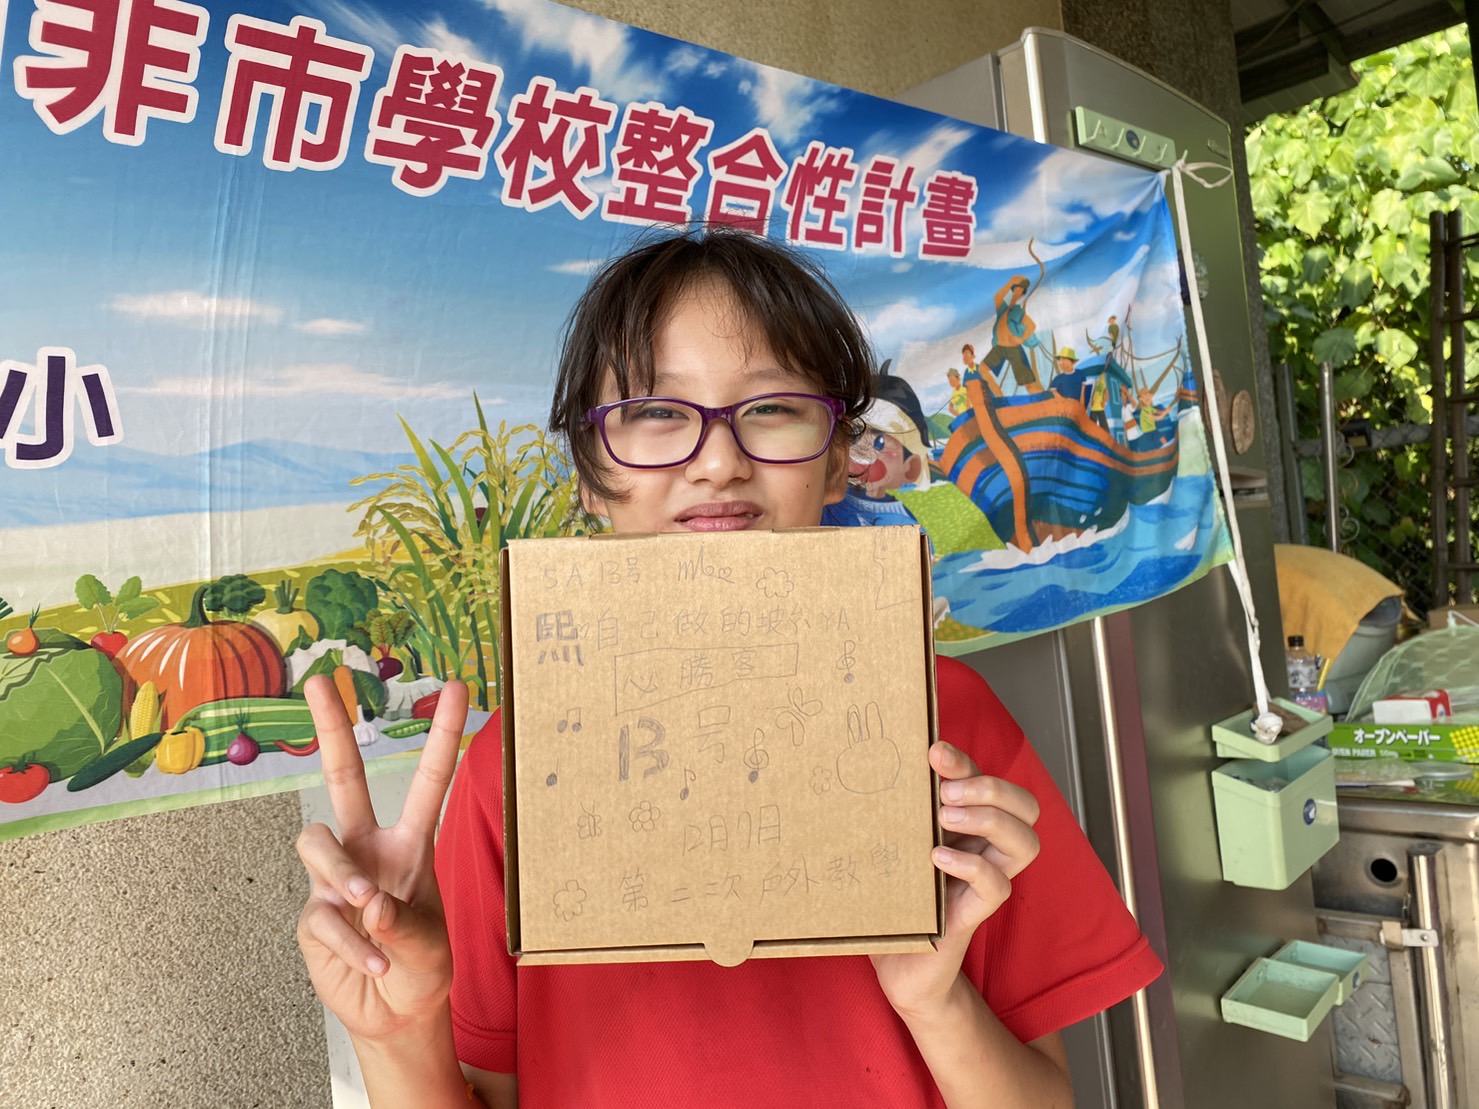 非市學校整合性計畫
小
5A 13号
熙自己做的坡ㄙYA
必勝客
13号
12月17日
第二次戶外教學
オーブンペーパー
OVEN PAPER